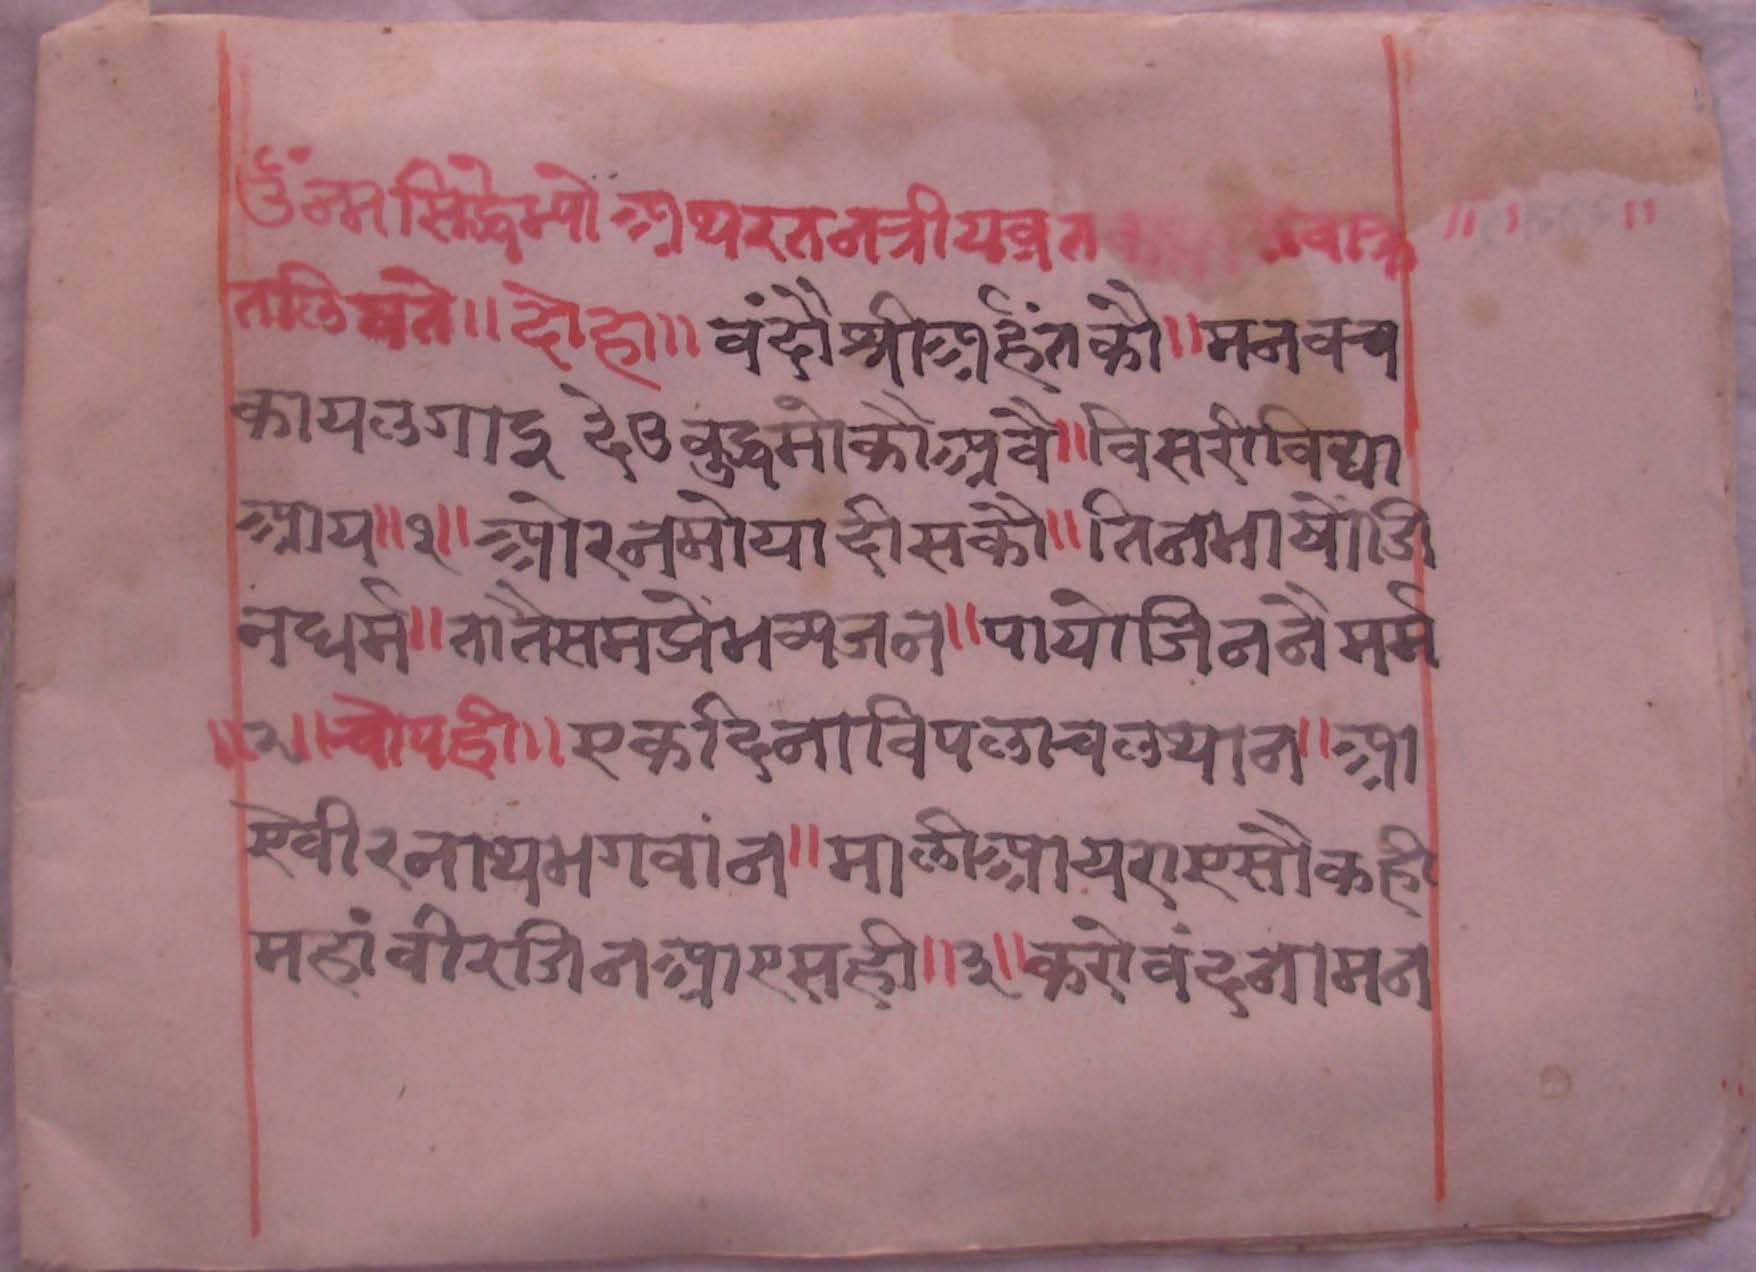 ॐनमसिद्धेभ्यो अथरतनत्रीयव्रत
तलिष्यते ॥ दोहा ॥ वंदौश्रीअर्हंतकौ ॥ मनवच
कायलगाइ देउबुद्धमोकौअवै ॥ विसरीविद्या
आय ॥ १ ॥ ओरनमोयादीसकौ ॥ तिनभाष्योजि
नधर्म ॥ तातैसमझेभव्यजन ॥ पायोजिननैमर्म
॥ २ ॥ चोपही ॥ एकदिनाविपलाचलथान ॥ आ
एवीरनाथभगवांन ॥ मालीआयराएसौकही
महांवीरजिनआएसही ॥ ३ ॥ करोवंदनामन